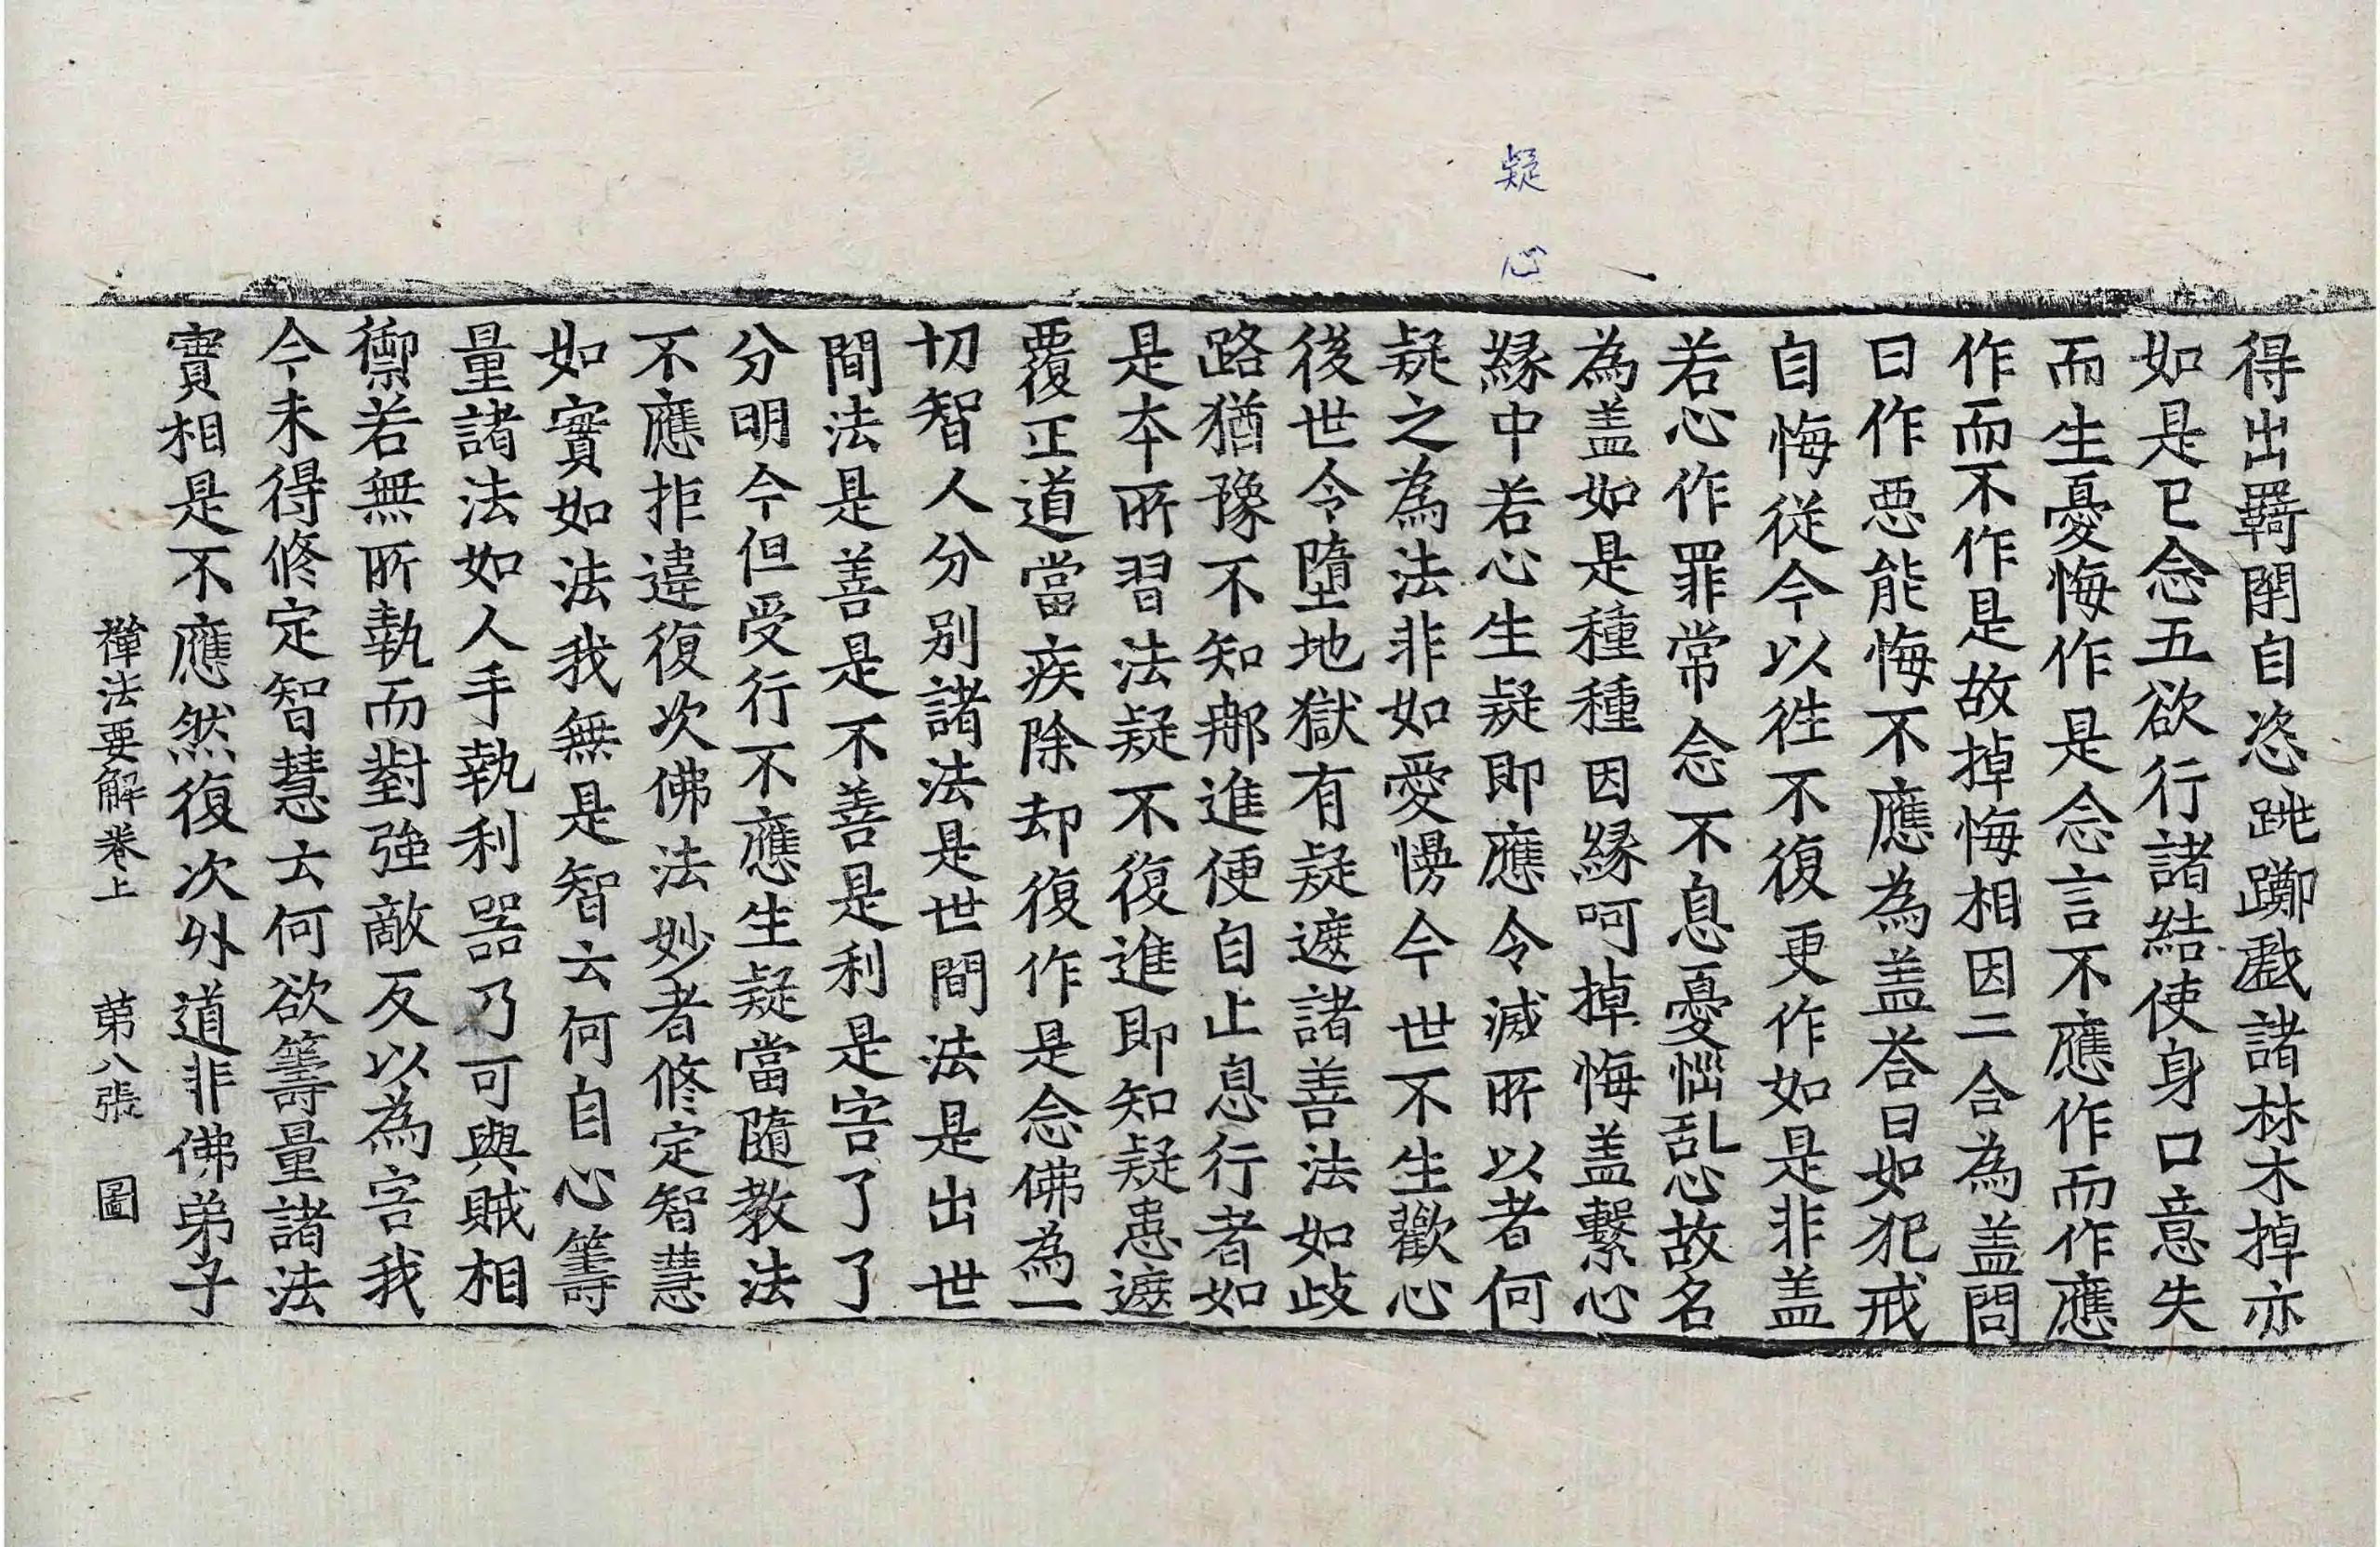 疑心
得出羇閞自恣跳躑戲諸林木掉亦
如是已念五欲行諸結使身口意失
而生憂悔作是念言不應作而作應
作而不作是故掉悔相因二合為盖問
曰作惡能悔不應為盖荅曰如犯戒
自悔從今以徃不復更作如是非盖
若心作罪常念不息憂惱乱心故名
為盖如是種種因縁呵掉悔盖繫心
縁中若心生疑即應令滅所以者何
疑之為法非如愛慢今世不生歡心
後世令墮地獄有疑遮諸善法如歧
路猶豫不知𨙻進便自止息行者如
是本所習法疑不復進即知疑患遮
覆正道當疾除却復作是念佛為一
切智人分别諸法是世間法是出世
間法是善是不善是利是害了了
分明今但受行不應生疑當隨教法
不應拒違復次佛法妙者修定智慧
如實如法我無是智云何自心籌
量諸法如人手執利器乃可與賊相
禦若無所執而對強敵反以為害我
今未得修定智慧云何欲籌量諸法
實相是不應然復次外道非佛弟子
禪法要解卷上 苐八張 圖